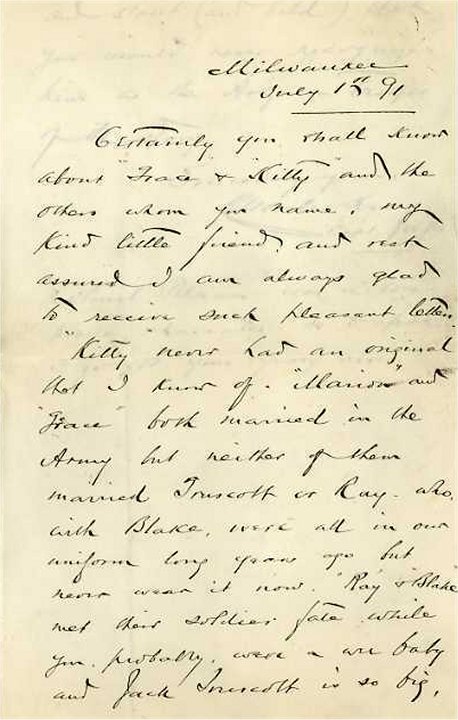 Milwaukee
July 1st 91
Certainly you shall know
about "Grace & "Kitty" and the
others whom you name, my
kind little friend, and rest
assured I am always glad
to receive such pleasant letters.
"Kitty never had an original
that I know of. "Marion" and
"Grace" both married in the
Army but neither of them
married Truscott or Ray - who,
with Blake, were all in our
uniform long years ago but
never wear it now. "Ray & "Blake"
met their soldier fate while
you, probably, were a wee baby
and Jack Truscott is so big,